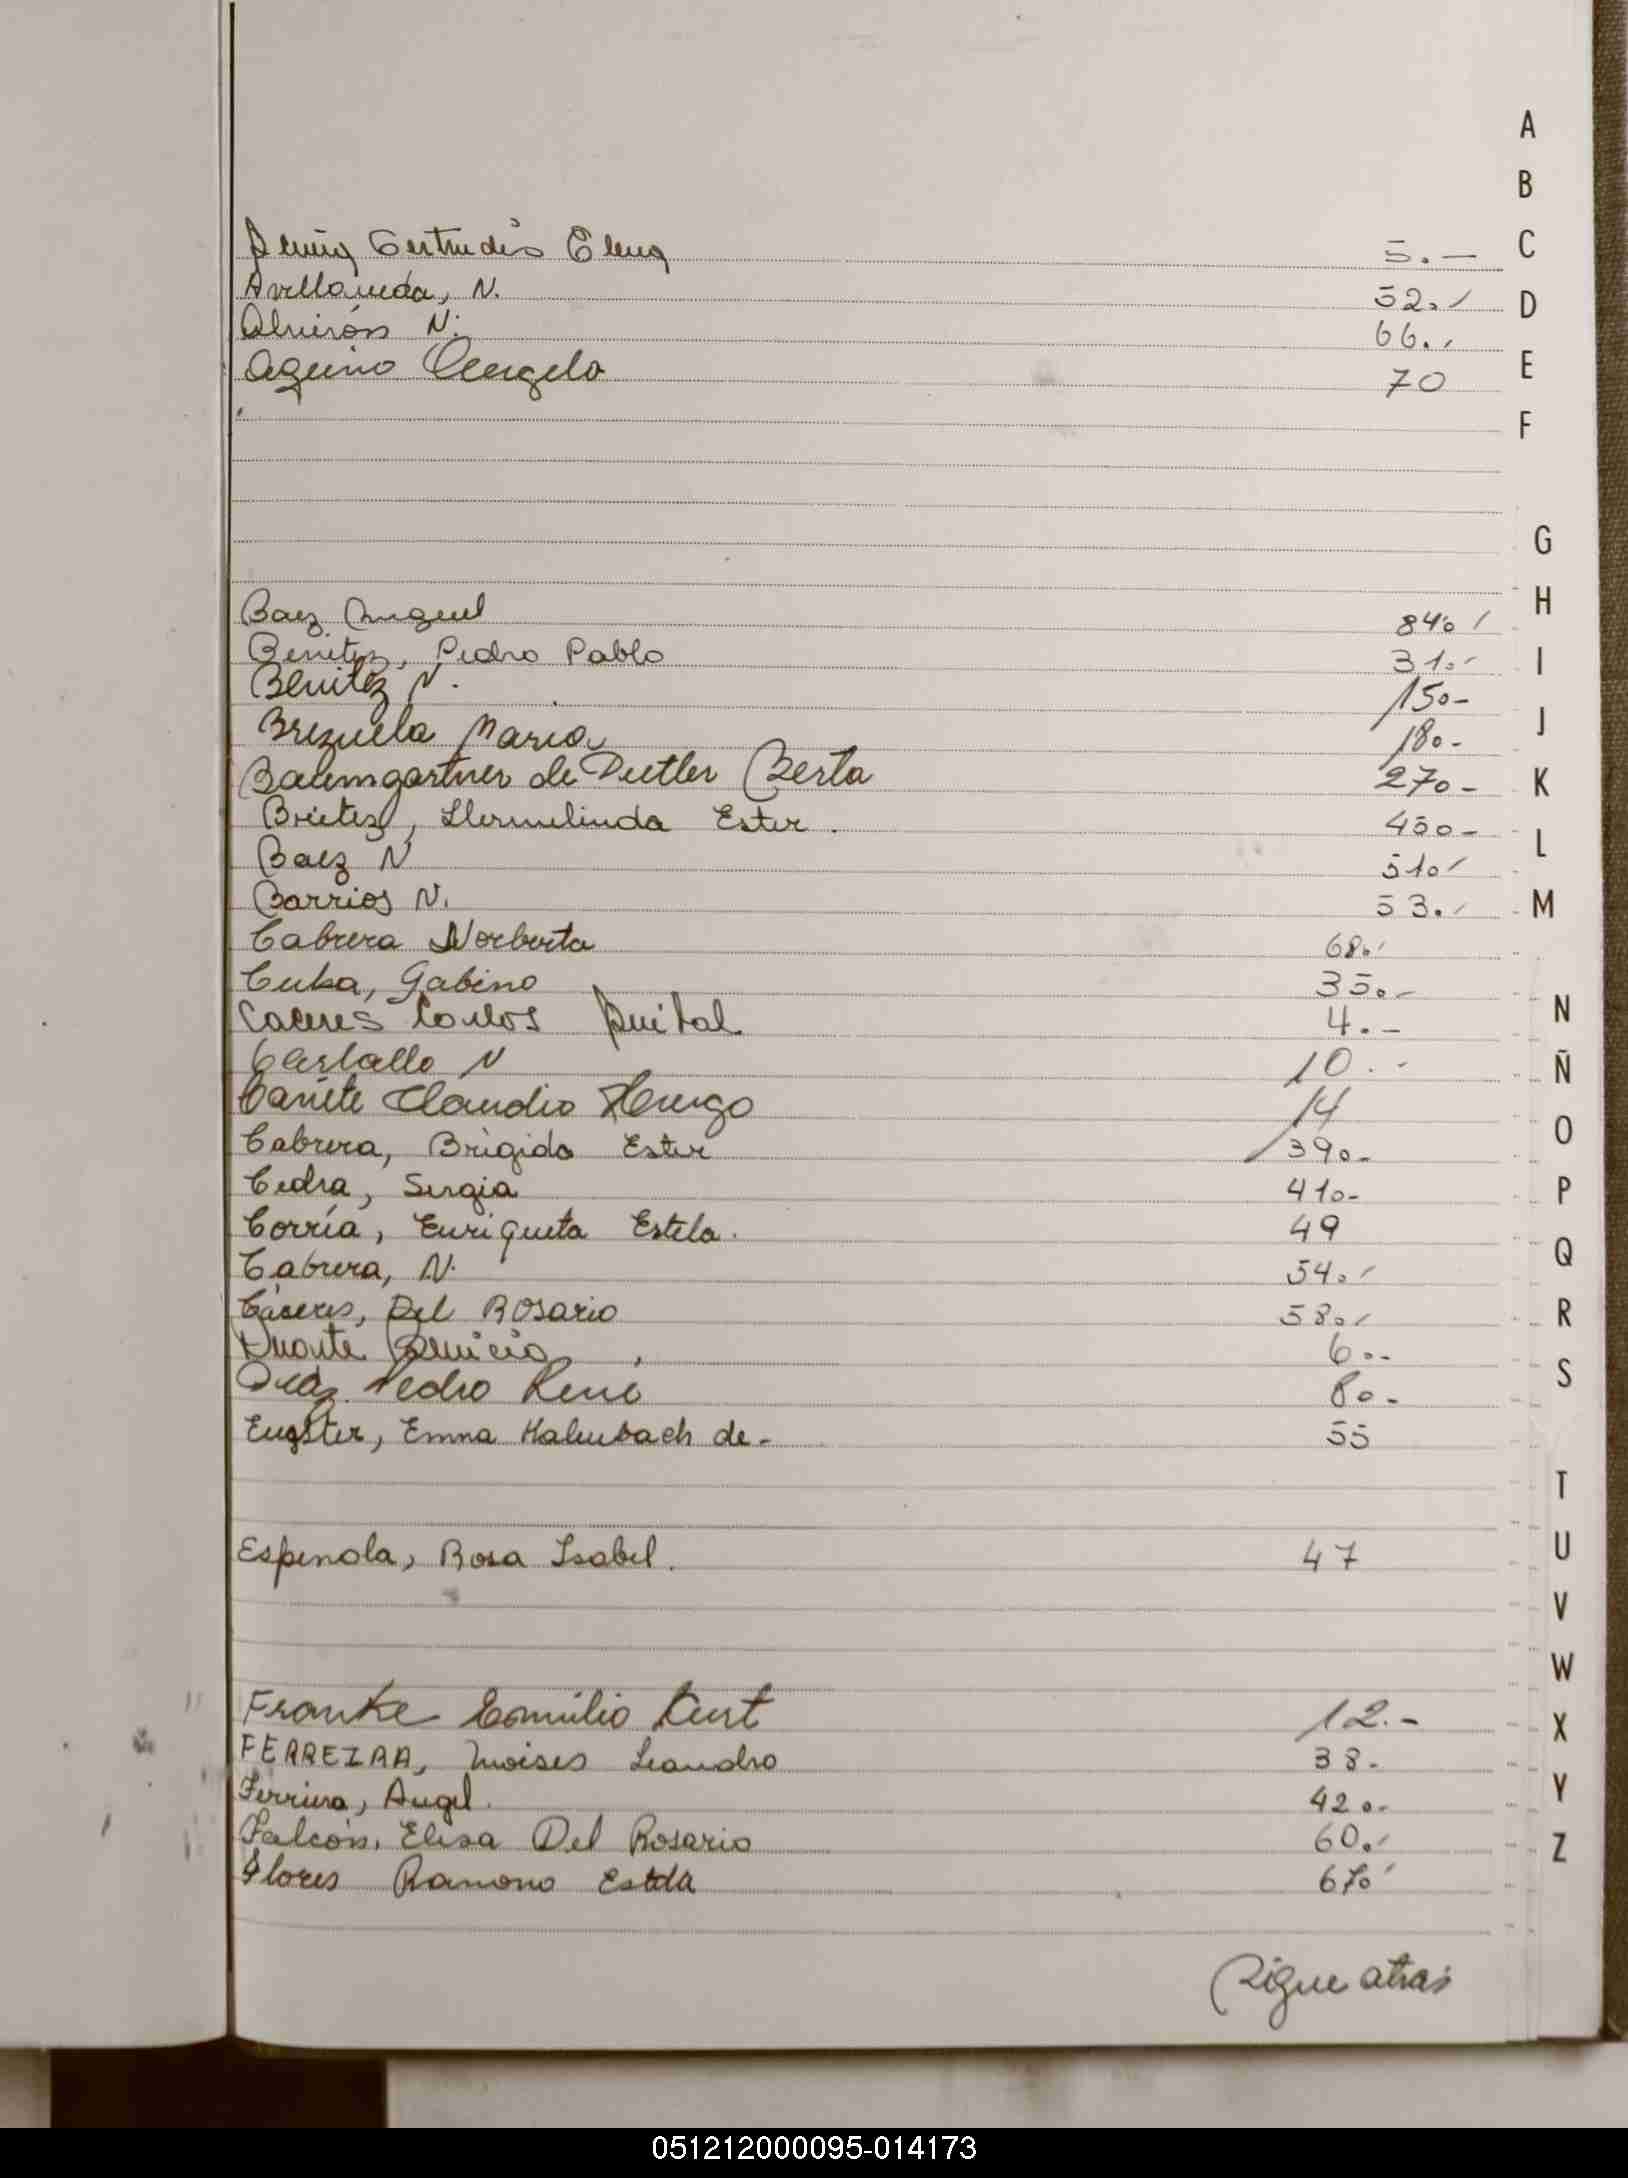 A
B
Gertrudis Elena 5.- C
Avellaneda, N. 52.- D
Almirón N. 66.-
Aquino Angela 70 E
F
G
H
Baez Miguel 84.-
Benitez, Pedro Pablo 31.- I
Benitez N. 15.-
Brezuela Maria 18.- J
Baumgartner de Dutler Berta 27.- K
Britez, Hermelinda Ester. 45.-
L
Baez N 51.-
Barrios N. 53.- M
Cabrera Norberta 68.-
Cuba, Gabino 35.-
N
Caceres Carlos Anibal 4.-
Carballo N 10.- Ñ
Cañete Claudio Hugo 14
O
Cabrera, Brigida Ester 39.-
Cedra, Sergia 41.- P
Corría, Enriqueta Estela. 49
Q
Cabrera, N. 54.-
Cáceres, Del Rosario 58.- R
Duarte 6.-
Diaz Pedro Rene 8.- S
Eugster, Emma Halmbach de- 55
T
Espinola, Rosa Isabel. 47 U
V
W
Franke Emilio Kurt 12.- X
FERREIRA, Moises Leandro 38.-
Ferreira, Angel. 42.- Y
Falcón, Elisa Del Rosario 60.- Z
Flores Ramona Estela 67.-
Sigue atras
051212000095-014173